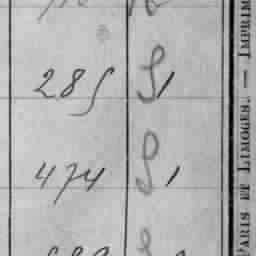 285 S1
474 S1
PARIS ET LIMOGES. — IMPRIM